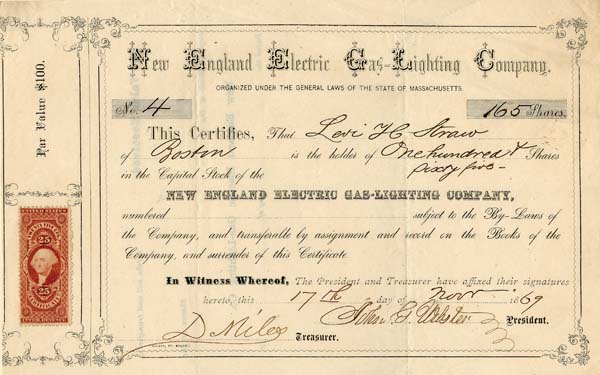 New England Electric Gas-Lighting Company.
ORGANIZED UNDER THE GENERAL LAWS OF THE STATE OF MASSACHUSETTS.
No. 4 165 Shares.
This Certifies, That Levi H Straw
of Boston is the holder of One hundred & Shares
sixty five
in the Capital Stock of the
NEW ENGLAND ELECTRIC GAS-LIGHTING COMPANY,
numbered subject to the By-Laws of
the Company, and transferable by assignment and record on the Books of the
Company, and surrender of this Certificate.
In Witness Whereof, The President and Treasurer have affixed their signatures
hereto, this 17th day of Nov 1869
John G Webster President.
D Miles Treasurer.
Par Value $100.
25 25